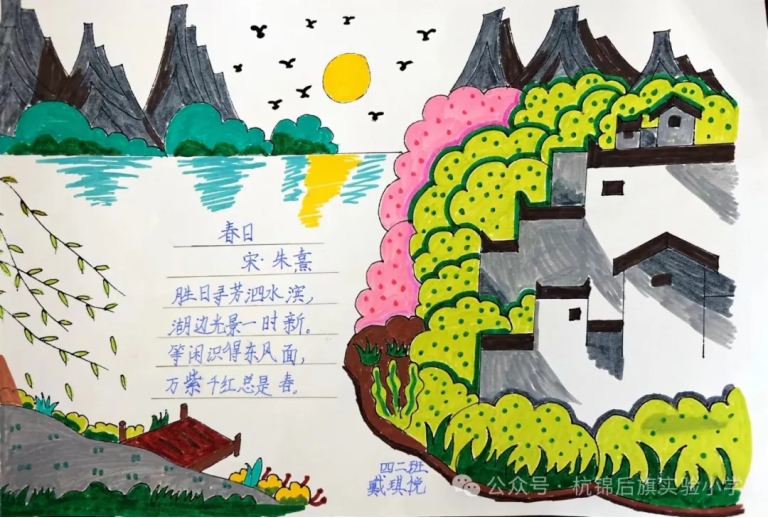 春日
宋·朱熹
胜日寻芳泗水滨，
湖边光景一时新。
等闲识得东风面，
万紫千红总是春。
四二班
戴琪悦
公众号·杭锦后旗实验小学